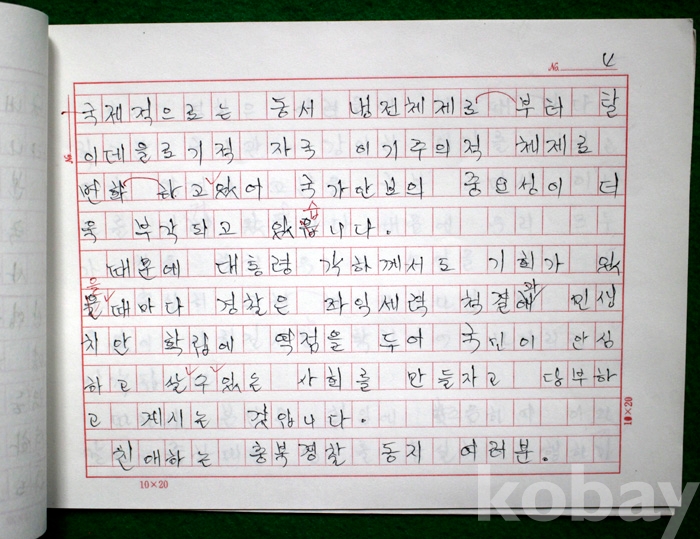 No. 4
국제적으로는 동서 냉전체제로 부터 탈
이데올로기적 자국 이기주의적 체제로
변화 하고 있어 국가안보의 중요성이 더
욱 부각되고 있습니다.
때문에 대통령 각하께서도 기회가 있
을 때마다 경찰은 좌익세력 척결과 민생
치안 확립에 역점을 두어 국민이 안심
하고 살 수 있는 사회를 만들자고 당부하
고 계시는 것입니다.
친애하는 충북경찰 동지 여러분.
10×20
10×20
kobay